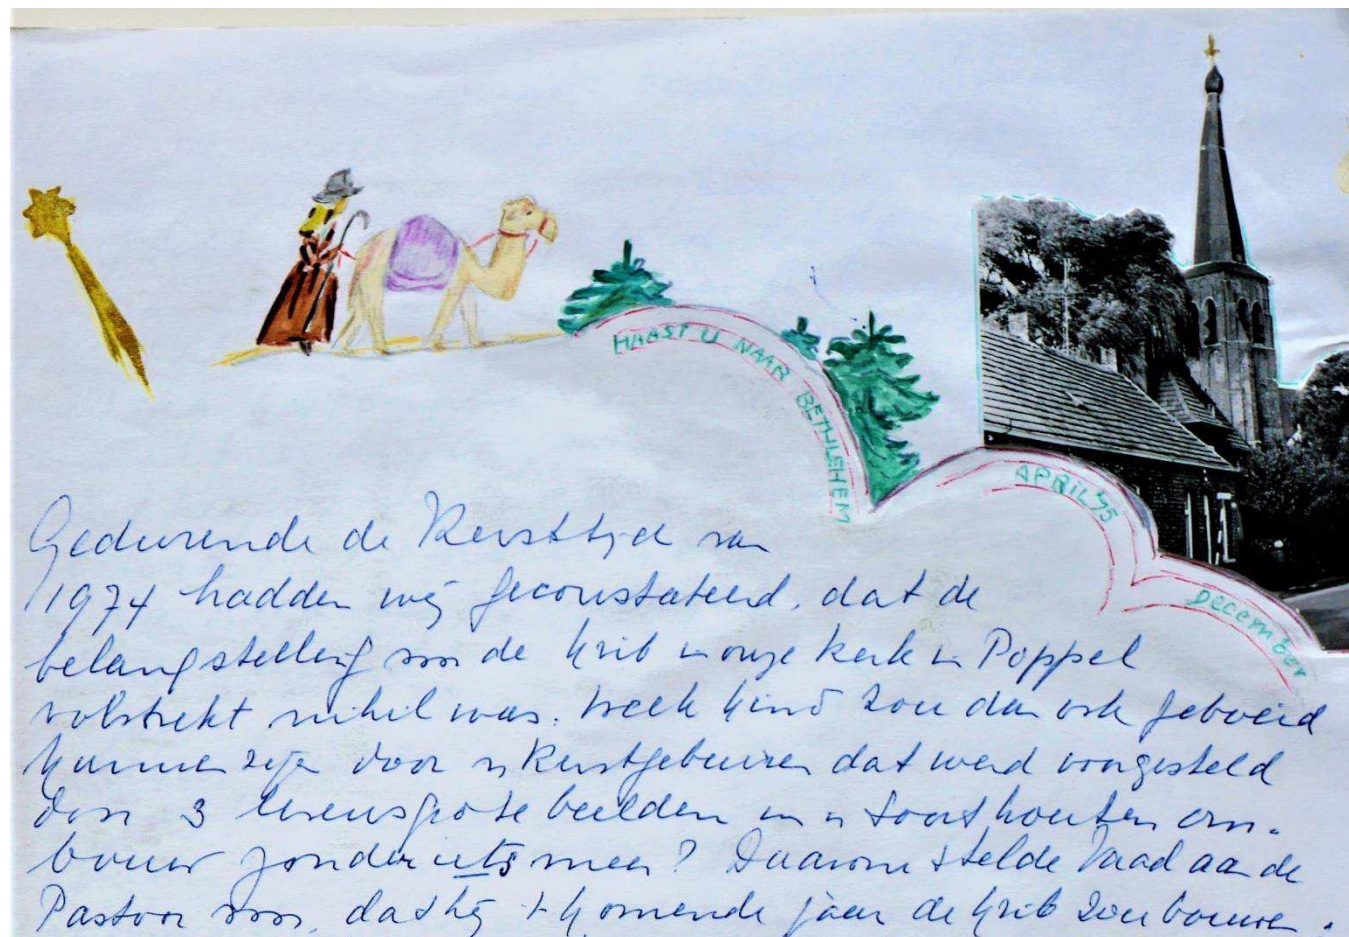 HAAST U NAAR BETHLEHEM
APRIL '75
December
Gedurende de Kersttijd van
1974 hadden wij geconstateerd, dat de
belangstelling voor de krib in onze kerk in Poppel
volstrekt nihil was. Welk kind zou dan ook geboeid
kunnen zijn door 'n Kerstgebeuren dat werd voorgesteld
door 3 levensgrote beelden in 'n soort houten om-
bouw zonder iets meer? Daarom stelde aan de
Pastoor voor, dat hij 't komende jaar de krib zou bouwen.